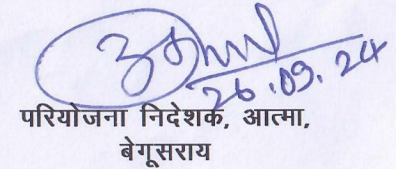 26.09.24
परियोजना निदेशक, आत्मा,
बेगूसराय